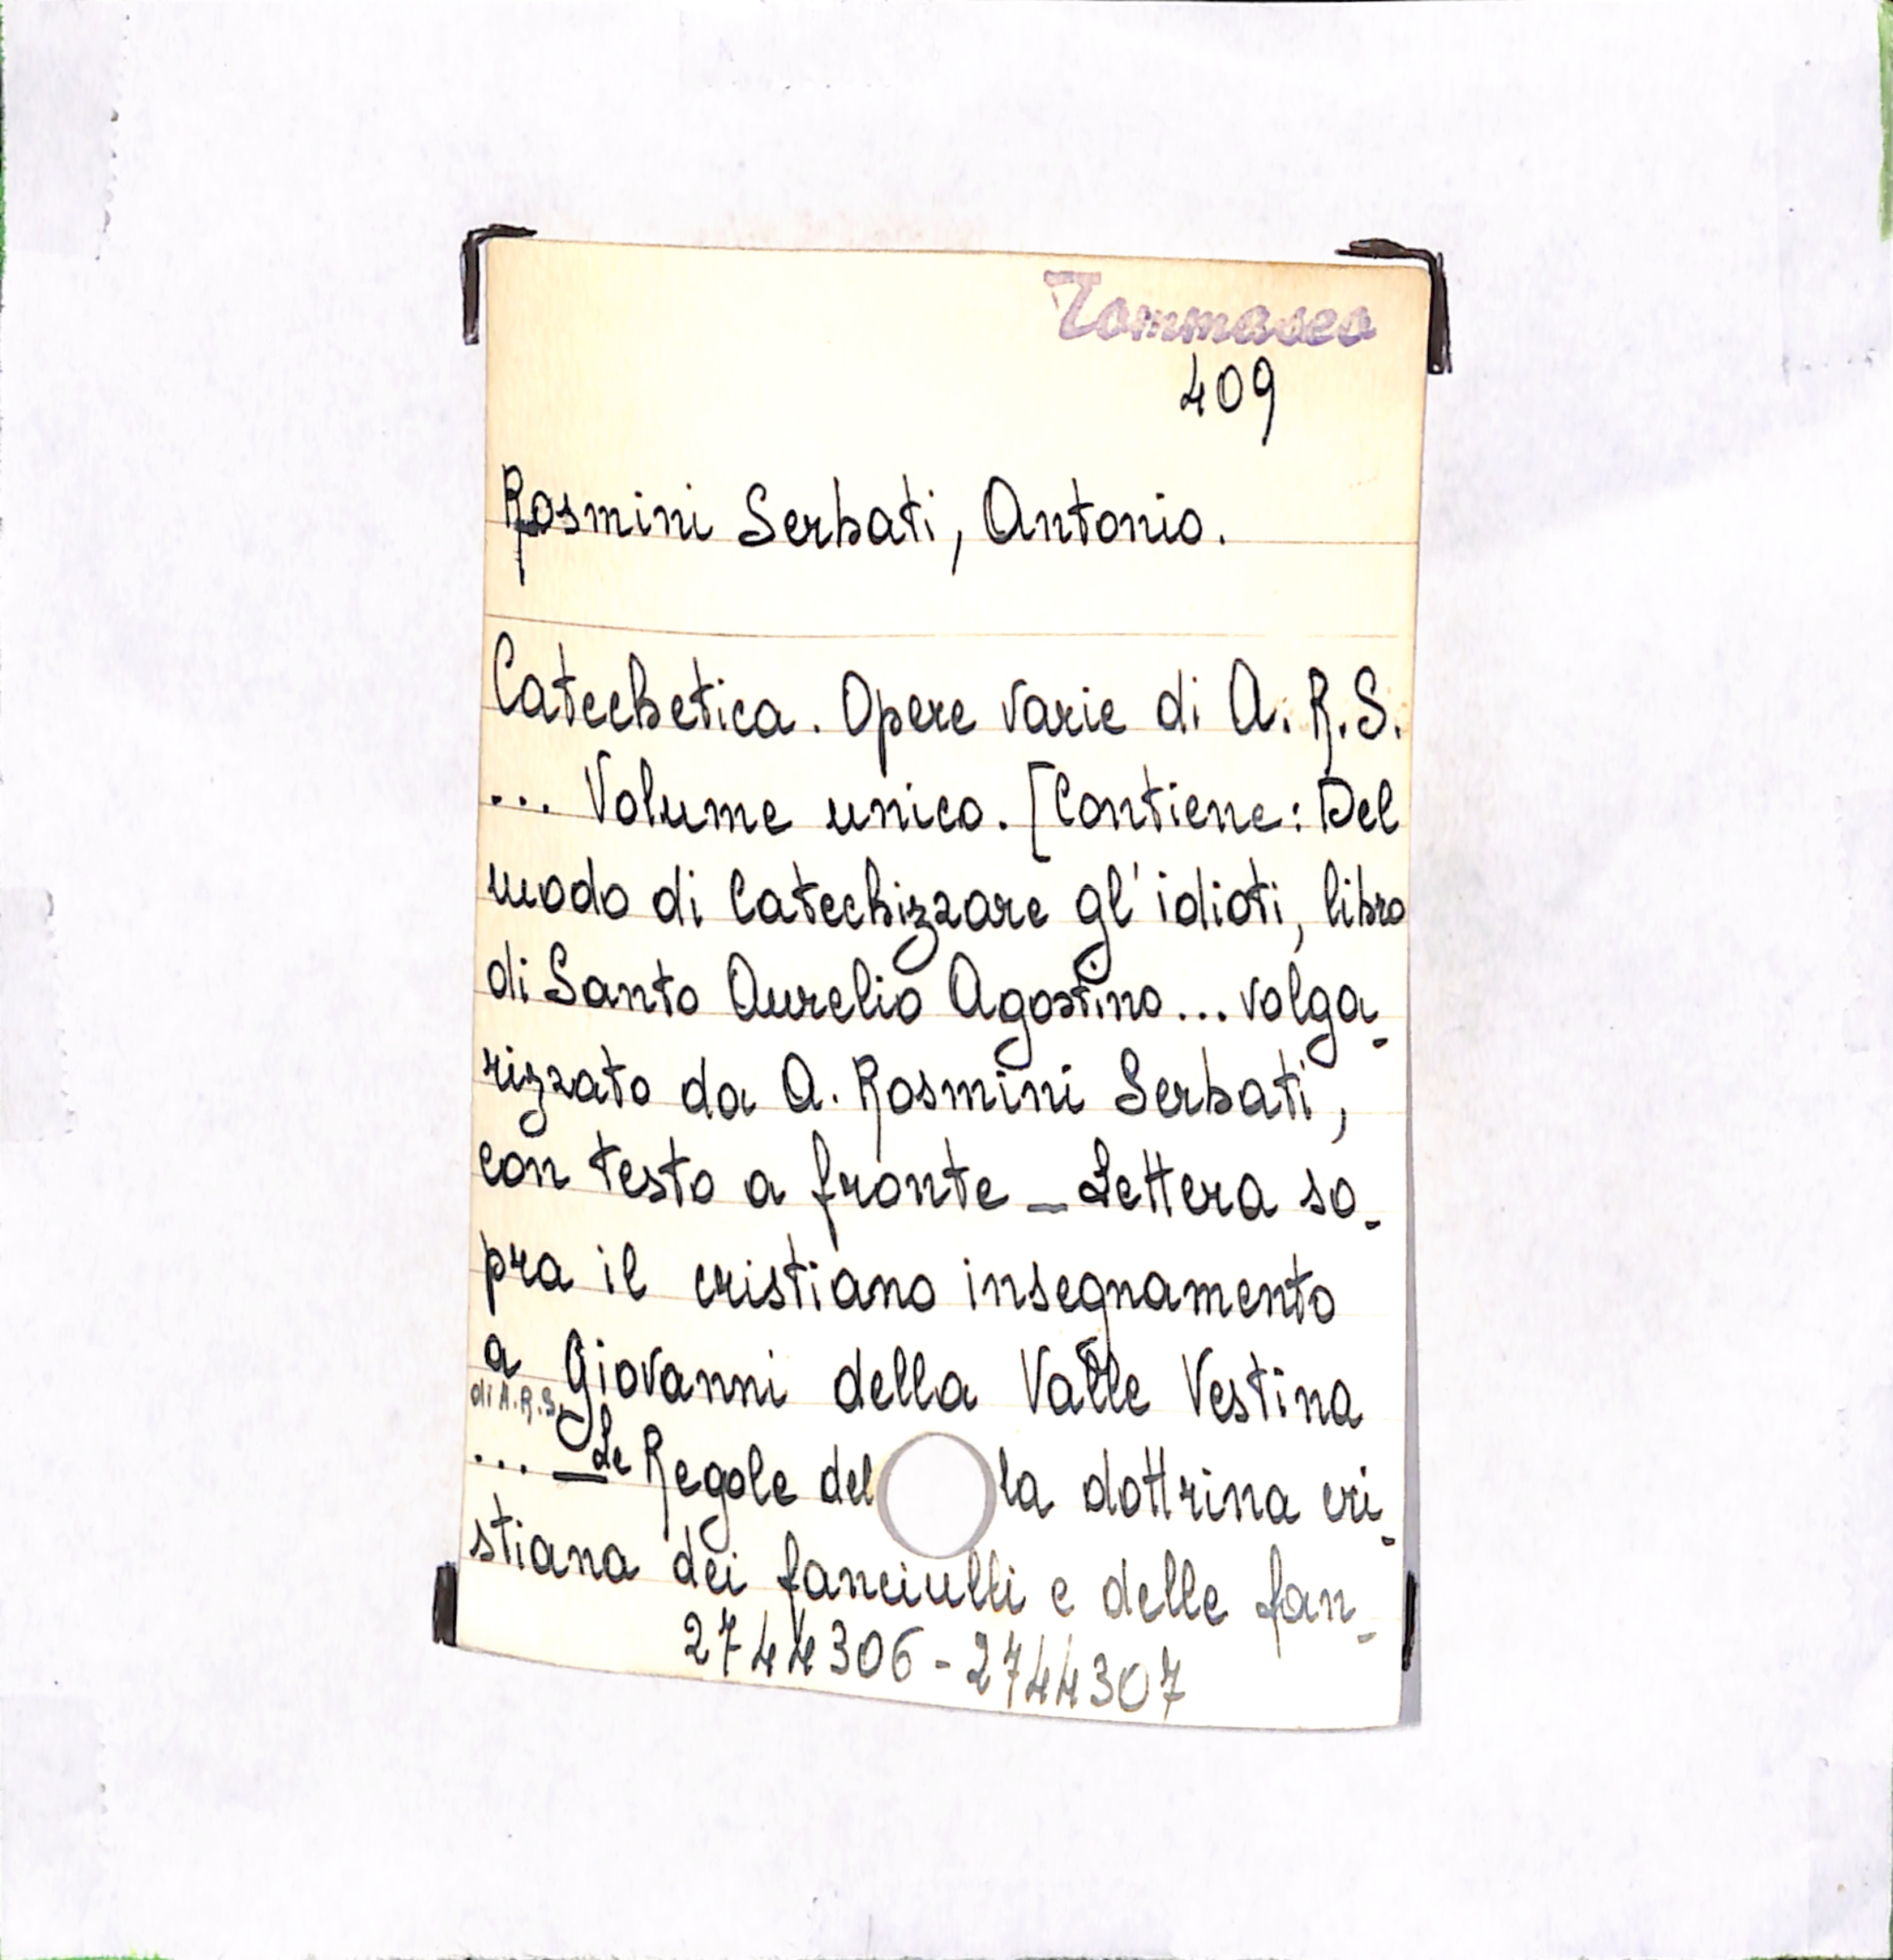 Tommaseo
409
Rosmini Serbati, Antonio.
Catechetica. Opere varie di A. R. S.
... Volume unico. [Contiene: Del
modo di Catechizzare gl' idioti, libro
di Santo Aurelio Agostino... volga-
rizzato da A. Rosmini Serbati,
con testo a fronte _ Lettera so-
pra il cristiano insegnamento
a Giovanni della Valle Vestina
di A. R. S.
... _ Le Regole del la dottrina cri-
stiana dei fanciulli e delle fan-
2744306 - 2744307